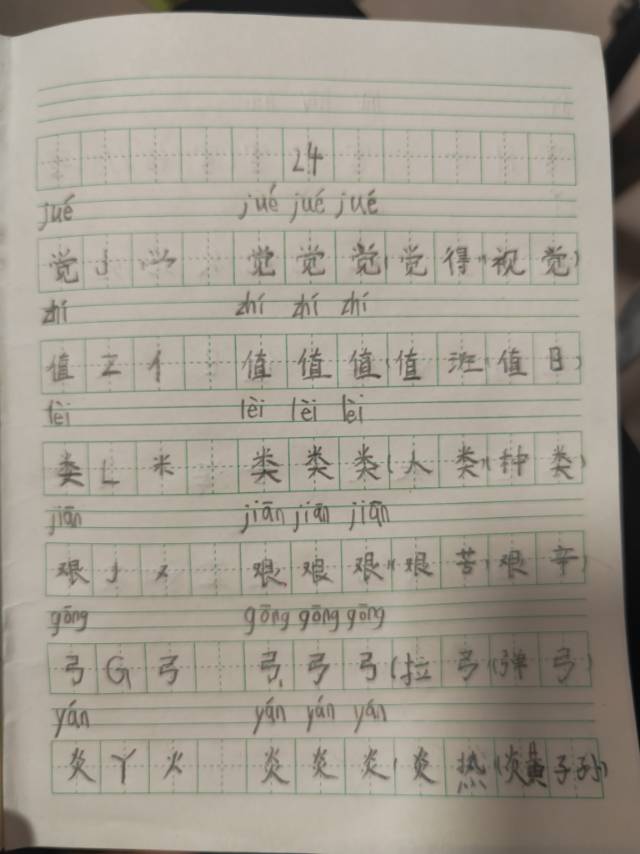 24
jué jué jué jué
觉 J 𭕄 觉 觉 觉(觉 得)(视 觉)
zhí zhí zhí zhí
值 Z 亻 值 值 值(值 班)(值 日)
lèi lèi lèi lèi
类 L 米 类 类 类(人 类)(种 类)
jiān jiān jiān jiān
艰 J 又 艰 艰 艰(艰 苦)(艰 辛)
gōng gōng gōng gōng
弓 G 弓 弓 弓 弓(拉 弓)(弹 弓)
yán yán yán yán
炎 Y 火 炎 炎 炎(炎 热)(炎黄子孙)